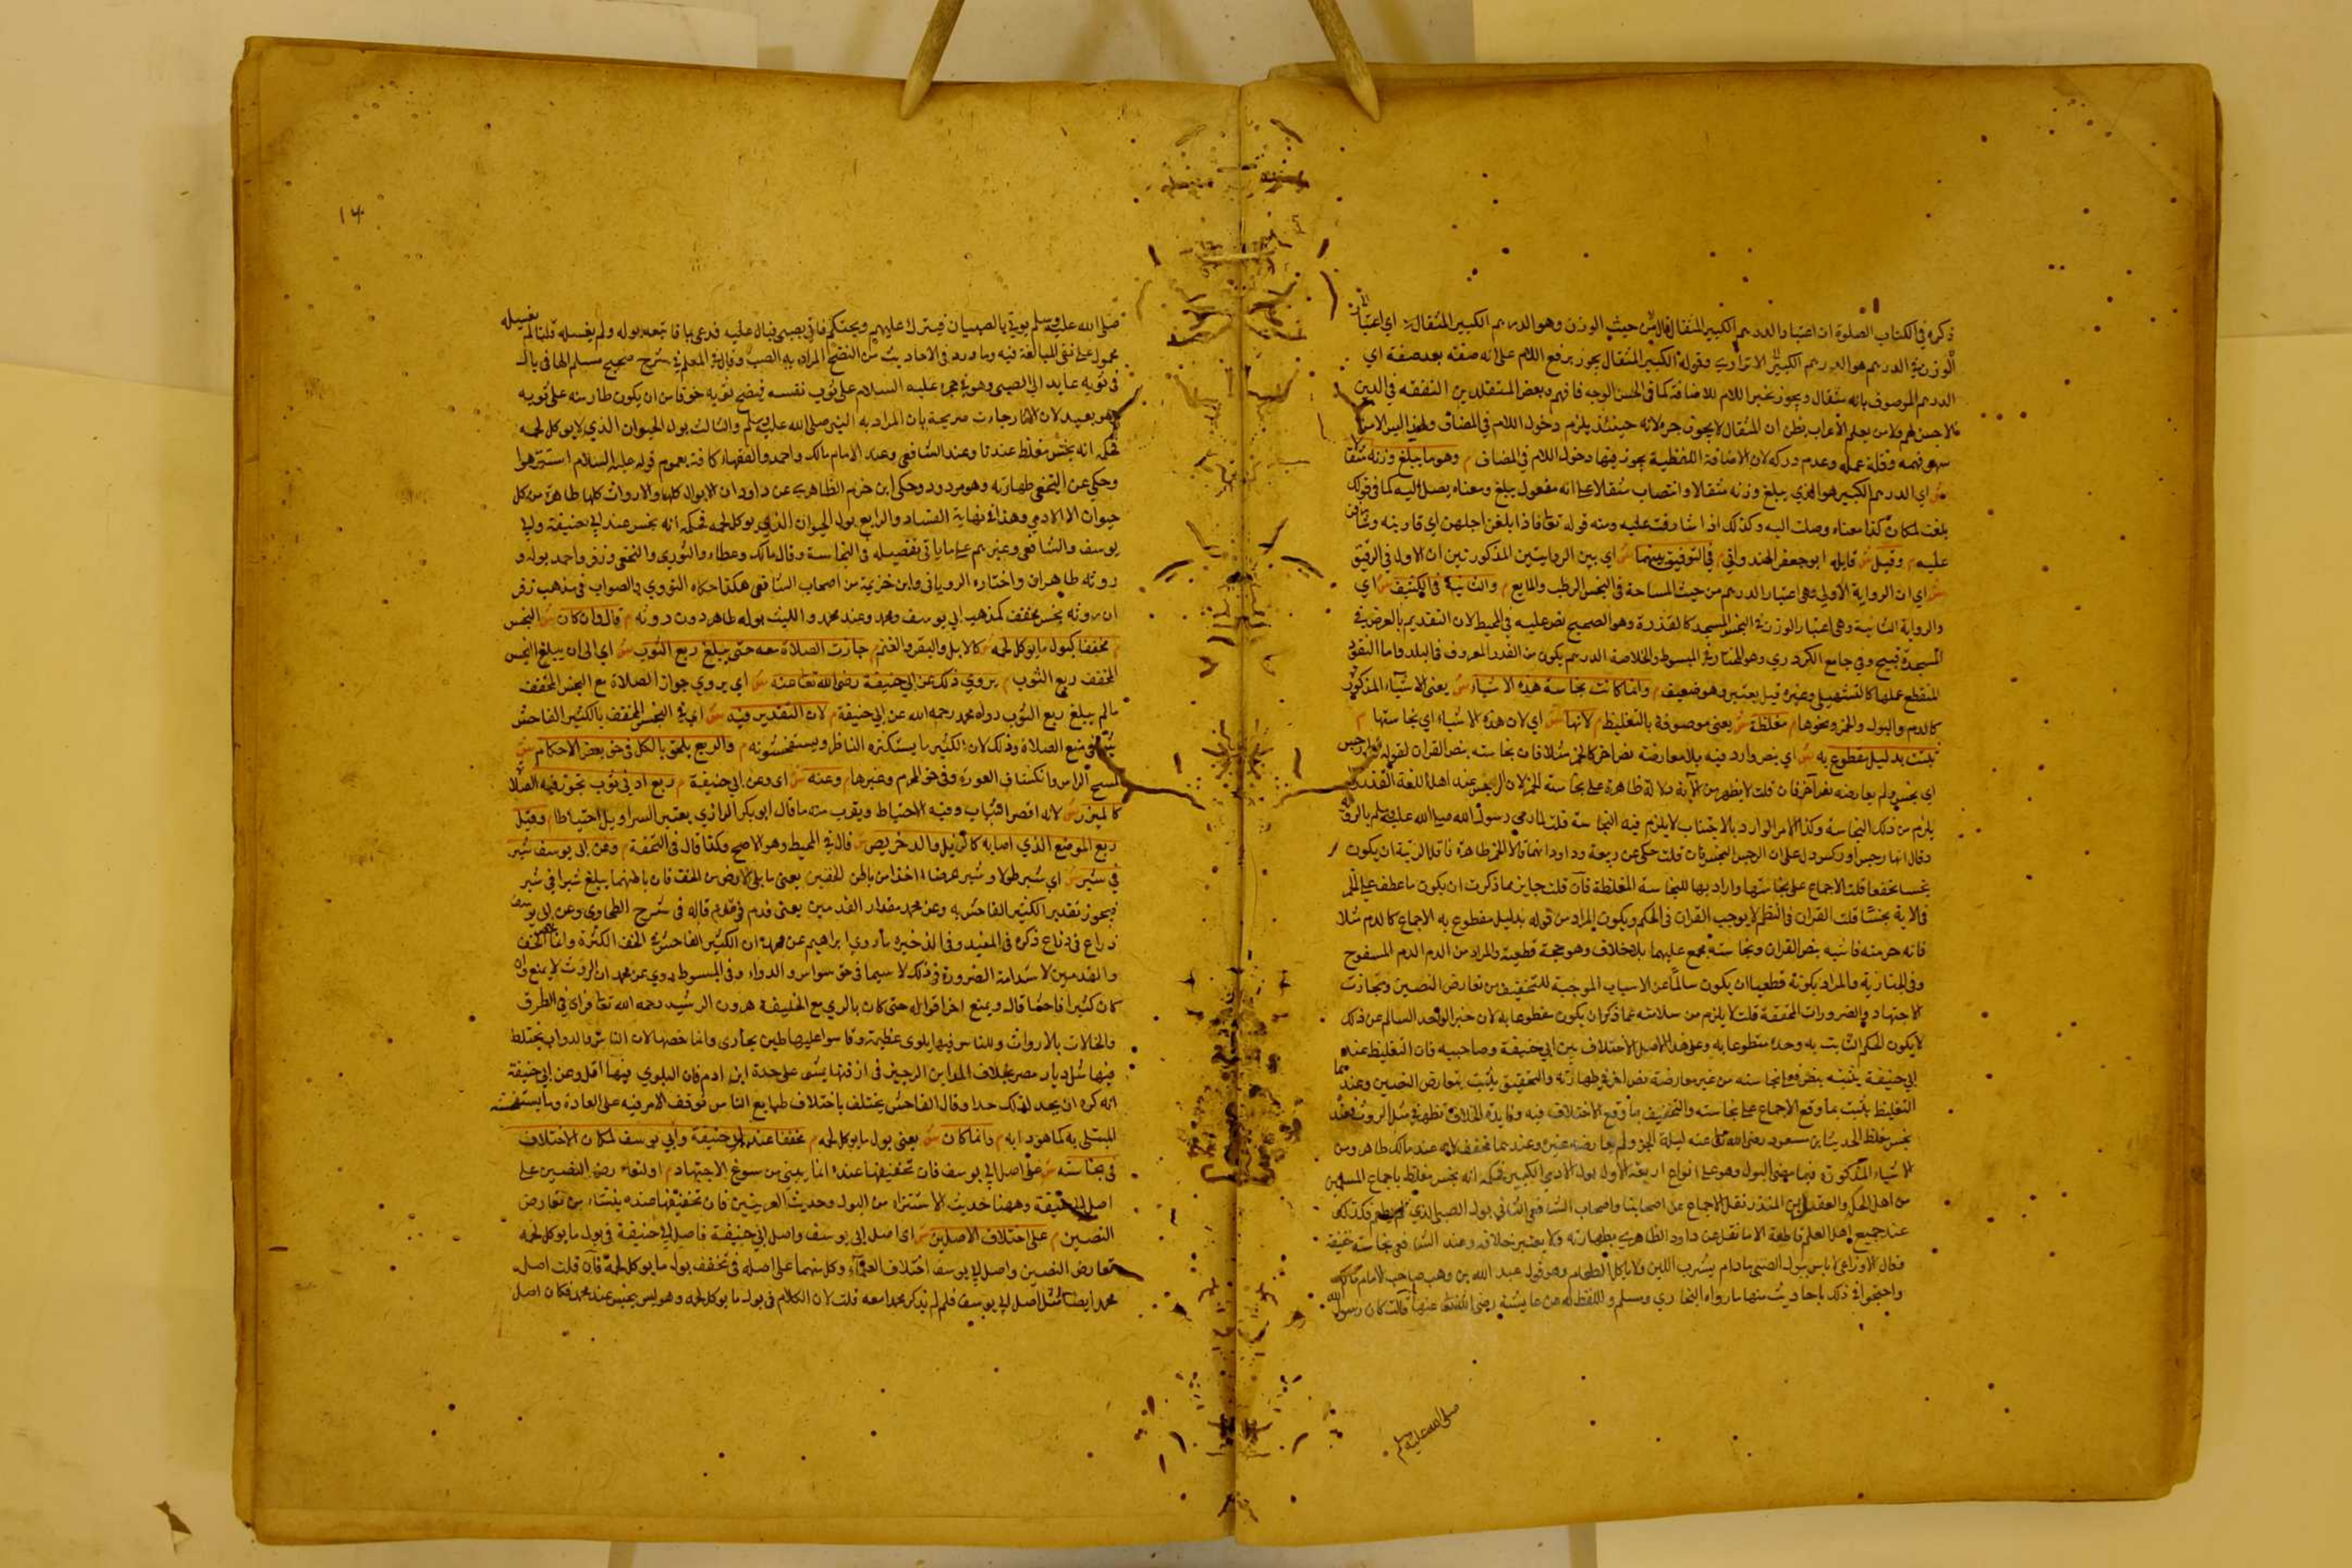 ذكره في الكتاب الصلوة ان اعتبار الدرهم الكبير المثقال قال ش حيث الوزن وهو الدرهم الكبير المثقال ش اي اعتبار
الوزن في الدرهم هو الدرهم الكبير وقوله الكبير المثقال يجوز برفع اللام على انه صفة بعد صفة اي
الدرهم الموصوف بانه مثقال ويجوز بجر اللام للاضافة كما في الحسن الوجه فافهم وبعض المتقلدين التفقه في الدين
يظن ان المثقال لا يجوز جره لانه حينئذ يلزم دخول اللام في المضاف
فهمه وقلة عمله وعدم دركه لان الاضافة اللفظية يجوز فيها دخول اللام في المضاف م وهو ما يبلغ وزنه مثقالا
ش اي الدرهم الكبير هو الذي يبلغ وزنه مثقالا وانتصاب مثقالا على انه مفعول يبلغ ومعناه يصل اليه كما في قولك
بلغت المكان كذا معناه وصلت اليه وكذلك اذا شارفت عليه ومنه قوله تعالى فاذا بلغن اجلهن اي قاربنه
عليه م وقيل ش قايله ابو جعفر الهندواني م في التوفيق بينهما ش اي بين الروايتين المذكورتين ان الاولى في الرقيق
ش اي ان الرواية الاولى وهي اعتبار الدرهم من حيث المساحة في النجس الرطب والمايع م والثانية في الكثيف ش اي
والرواية الثانية وهي اعتبار الوزن في النجس المستجسد كالعذرة وهو الصحيح نص عليه في المحيط لان التقدير بالعرض في
المستجسدة قبيح وفي جامع الكردري وهو المختار وفي المبسوط والخلاصة الدرهم يكون من النقد المعروف في البلد واما النقود
المنقطع عملها كالشهليل وغيره قيل يعتبر وهو ضعيف م وانما كانت نجاسة هذه الاشياء ش يعني الاشياء المذكورة
كالدم والبول والخمر ونحوها م مغلظة ش يعني موصوفة بالتغليظ م لانها ش اي لان هذه الاشياء اي نجاستها م
ثبتت بدليل مقطوع به ش اي بنص وارد فيه بلا معارضة نص اخر كالخمر مثلا فان نجاسته بنص القران لقوله تعالى رجس
اي نجس ولم يعارضه نص آخر فان قلت لا يظهر من الآية دلالة ظاهرة على نجاسة الخمر لان الرجس عند اهل اللغة القذر
يلزم من ذلك النجاسة وكذا الامر الوارد بالاجتناب لا يلزم فيه النجاسة قلت لما رمى رسول الله صلى الله عليه وسلم بالروثة
وقال انها رجس او ركس دل على ان الرجس النجس فان قلت حكي عن ربيعة وداود انهما قالا الخمر طاهرة
نجسا مخففا قلت الاجماع على نجاستها واراد بها النجاسة المغلظة فان قلت جايز مما ذكرت ان يكون ما عطف على الخمر
في الاية نجسا قلت القران في النظم لا يوجب القران في الحكم ويكون المراد من قوله بدليل مقطوع به الاجماع كالدم مثلا
فانه حرمته ثابتة بنص القران ونجاسته مجمع عليهما بلا خلاف وهو حجة قطعية والمراد من الدم الدم المسفوح
وفي الخبازية والمراد بكونه قطعيا ان يكون سالما عن الاسباب الموجبة للتخفيف من تعارض النصين وتجاذب
الاجتهاد والضرورات المخففة قلت لا يلزم من سلامته عما ذكر ان يكون مقطوعا به لان خبر الواحد السالم عن ذلك
لا يكون الحكم الثابت به وحده مقطوعا به وعلى هذا الاصل الاختلاف بين ابي حنيفة وصاحبيه فان التغليظ عند
ابي حنيفة يثبت بنص في نجاسته من غير معارضة نص اخر في طهارته والتخفيف يثبت بتعارض النصين وعندهما
التغليظ يثبت بما وقع الاجماع على نجاسته والتخفيف بما وقع الاختلاف فيه وفايدة الخلاف تظهر في مثل الروث فعنده
نجس مغلظ لحديث ابن مسعود رضي الله تعالى عنه ليلة الجن ولم يعارضه غيره وعندهما مخفف لانه عند مالك طاهر ومن
الاشياء المذكورة فيما مضى البول وهو على انواع اربعة الاول بول الادمي الكبير فحكمه انه نجس مغلظ باجماع المسلمين
من اهل الحل والعقد ابن المنذر نقل الاجماع عن اصحابنا واصحاب الشافعي الثاني بول الصبي الذي لم يطعم وكذلك
عند جميع اهل العلم قاطبة الا ما نقل عن داود الظاهري بطهارته ولا يعتبر خلافه وعند الشافعي نجاسته خفيفة
وقال الاوزاعي لا باس ببول الصبي ما دام يشرب اللبن ولا ياكل الطعام وهو قول عبد الله بن وهب صاحب الامام مالك
واحتجوا في ذلك باحاديث منها ما رواه البخاري ومسلم واللفظ له عن عايشة رضي الله تعالى عنها قالت كان رسول الله
صلى الله عليه وسلم
١٤
صلى الله عليه وسلم يوتي بالصبيان فيبرك عليهم ويحنكهم فاتي بصبي فبال عليه فدعى بماء فاتبعه بوله ولم يغسله قلنا لم يغسله
محمول على نفي المبالغة فيه وما ورد في الاحاديث من النضح المراد به الصب وقال في المعلم في شرح صحيح مسلم الهاء في بال
في ثوبه عايد الى الصبي وهو في حجره عليه السلام على ثوب نفسه فنضح ثوبه خوفا من ان يكون طار منه على ثوبه
وهو بعيد لان الاثار جاءت صريحة بان المراد به النبي صلى الله عليه وسلم والثالث بول الحيوان الذي لا يوكل لحمه
فحكمه انه نجس مغلظ عندنا وعند الشافعي وعند الامام مالك واحمد والفقهاء كافة بعموم قوله عليه السلام استنزهوا
وحكي عن النخعي طهارته وهو مردود وحكى ابن حزم الظاهري عن داود ان الابوال كلها والارواث كلها طاهرة من كل
حيوان الا الادمي وهذا في نهاية الفساد والرابع بول الحيوان الذي يوكل لحمه فحكمه انه نجس عند ابي حنيفة وابي
يوسف والشافعي وغيرهم على ما ياتي تفصيله في النجاسة وقال مالك وعطاء والثوري والنخعي وزفر واحمد بوله و
روثه طاهران واختاره الروياني وابن خزيمة من اصحاب الشافعي هكذا حكاه النووي والصواب في مذهب زفر
ان روثه نجس مخفف كمذهب ابي يوسف ومحمد وعند محمد والليث بوله طاهر دون روثه م قال وان كان ش النجس
م مخففا كبول ما يوكل لحمه ش كالابل والبقر والغنم م جازت الصلاة معه حتى يبلغ ربع الثوب ش اي الى ان يبلغ النجس
المخفف ربع الثوب م يروي ذلك عن ابي حنيفة رضي الله تعالى عنه ش اي يروي جواز الصلاة مع النجس المخفف
ما لم يبلغ ربع الثوب رواه محمد رحمه الله عن ابي حنيفة م لان التقدير فيه ش اي في النجس المخفف بالكثير الفاحش
في منع الصلاة وذلك لان الكثير ما يستكثره الناظر ويستفحشونه م والربع يلحق بالكل في حق بعض الاحكام ش
كمسح الراس وانكشاف العورة وفي حق المحرم وغيرها م وعنه ش اي وعن ابي حنيفة م ربع ادنى ثوب تجوز فيه الصلاة
كالميزر ش لانه اقصر الثياب وفيه الاحتياط ويقرب منه ما قال ابو بكر الرازي يعتبر السراويل احتياطا م وقيل
ربع الموضع الذي اصابه كالذيل والدخريص ش قال في المحيط وهو الاصح وكذا قال في التحفة م وعن ابي يوسف شبر
في شبر ش اي شبر طولا وشبر عرضا اخذا من باطن الخفين يعني ما يلي الارض من الخف فان باطنهما يبلغ شبرا في شبر
فيجوز تقدير الكثير الفاحش به وعن محمد مقدار القدمين يعني قدم في قدم قاله في شرح الطحاوي وعن ابي يوسف
ذراع في ذراع ذكره في المفيد وفي الذخيرة ما روى ابراهيم عن محمد ان الكثير الفاحش في الخف الكثرة وانما
والقدمين لاستدامة الضرورة في ذلك لا سيما في حق سواس والدواب وفي المبسوط روي عن محمد ان الروث لا يمنع وان
كان كثيرا فاحشا قال ويمنع اخر اقواله حتى كان بالري مع الخليفة هرون الرشيد رحمه الله تعالى فراى في الطرق
والخانات بالارواث وللناس فيها بلوى عظيمة وقاسوا عليها طين بخارى وانما خصها لان الناس والدواب يختلط
فيها مثل ديار مصر بخلاف المداين الرجيز في ازقتها يمشى على حدة ابن ادم فان البلوي فيها اقل وعن ابي حنيفة
انه كره ان يحد لذلك حدا وقال الفاحش يختلف باختلاف طبايع الناس توقف الامر فيه على العادة وما يستفحشه
المبتلى به كما هو دابه م وانما كان ش يعني بول ما يوكل لحمه م مخففا عند ابي حنيفة وابي يوسف لمكان الاختلاف
في نجاسته ش على اصل ابي يوسف فان تخفيفها عنده انما يبنى من سوغ الاجتهاد م او لتعارض النصين على
اصل ابي حنيفة وههنا حديث الاستنزاه من البول وحديث العرنيين فان تخفيفها عنده ينشاء من تعارض
النصين م على اختلاف الاصلين ش اي اصل ابي يوسف واصل ابي حنيفة فاصل ابي حنيفة في بول ما يوكل لحمه
تعارض النصين واصل ابي يوسف اختلاف العلماء وكل منهما على اصله في تخفيف بول ما يوكل لحمه فان قلت اصل
محمد ايضا مثل اصل ابي يوسف فلم لم يذكر محمدا معه قلت لان الكلام في بول ما يوكل لحمه وهو ليس بنجس عند محمد فكان اصل